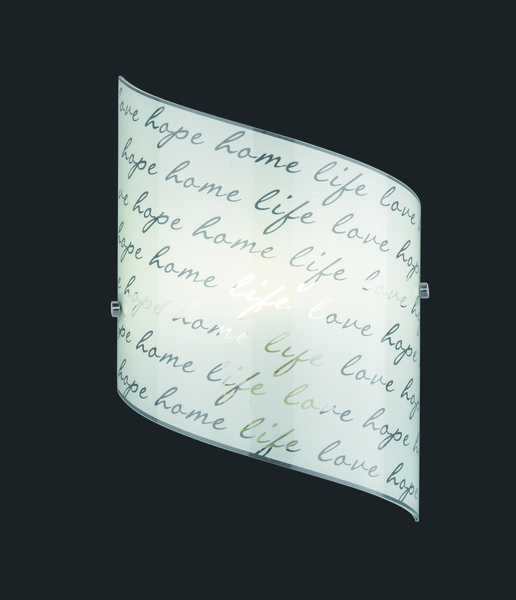 love hope home life love
hope home life love hope
love hope home life love h
hope home life love hope
hope home life love hop
hope home life love hope h
hope home life love hope